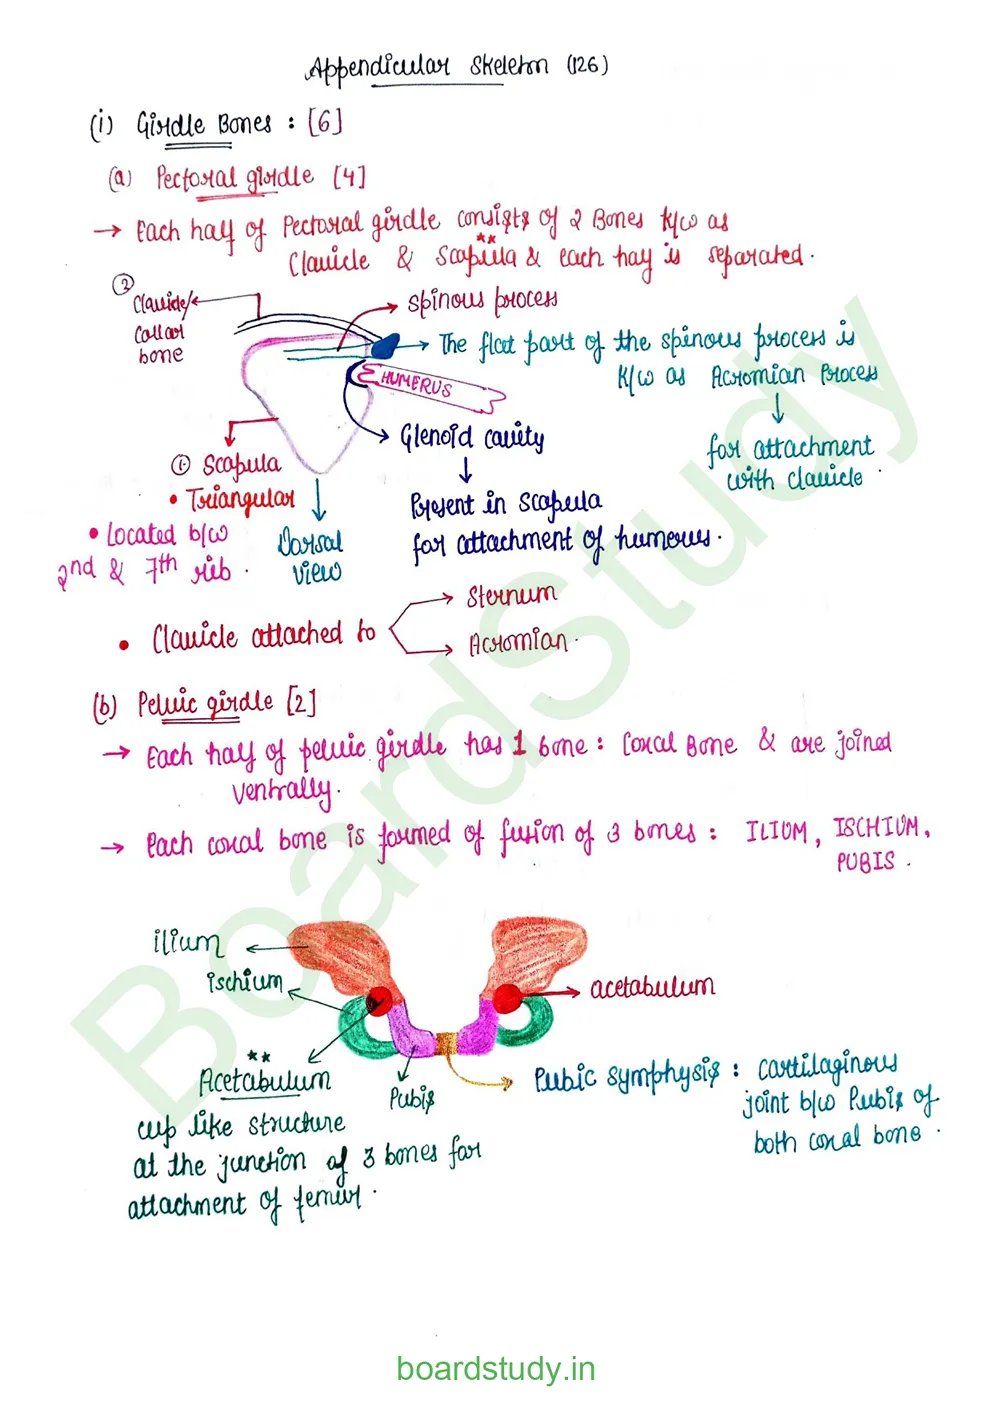 Appendicular Skeleton (126)
(i) Girdle Bones : [6]
(a) Pectoral girdle [4]
→ Each half of Pectoral girdle consists of 2 Bones k/w as
Clavicle & Scapula & each half is separated.
**
②
Clavicle/
Collar
bone
spinous process
→ The flat part of the spinous process is
k/w as Acromian Process
HUMERUS
Glenoid cavity
for attachment
with clavicle.
① Scapula
• Triangular
Present in Scapula
for attachment of humerus.
• Located b/w
2nd & 7th rib.
Dorsal
view
• Clavicle attached to
Sternum
Acromian.
(b) Pelvic girdle [2]
→ Each half of pelvic girdle has 1 bone : Coxal Bone & are joined
ventrally.
→ Each coxal bone is formed of fusion of 3 bones : ILIUM, ISCHIUM,
PUBIS.
ilium
ischium
acetabulum
**
Acetabulum
cup like structure
at the junction of 3 bones for
attachment of femur.
Pubis
Pubic symphysis : Cartilaginous
joint b/w Pubis of
both coxal bone.
BoardStudy
boardstudy.in